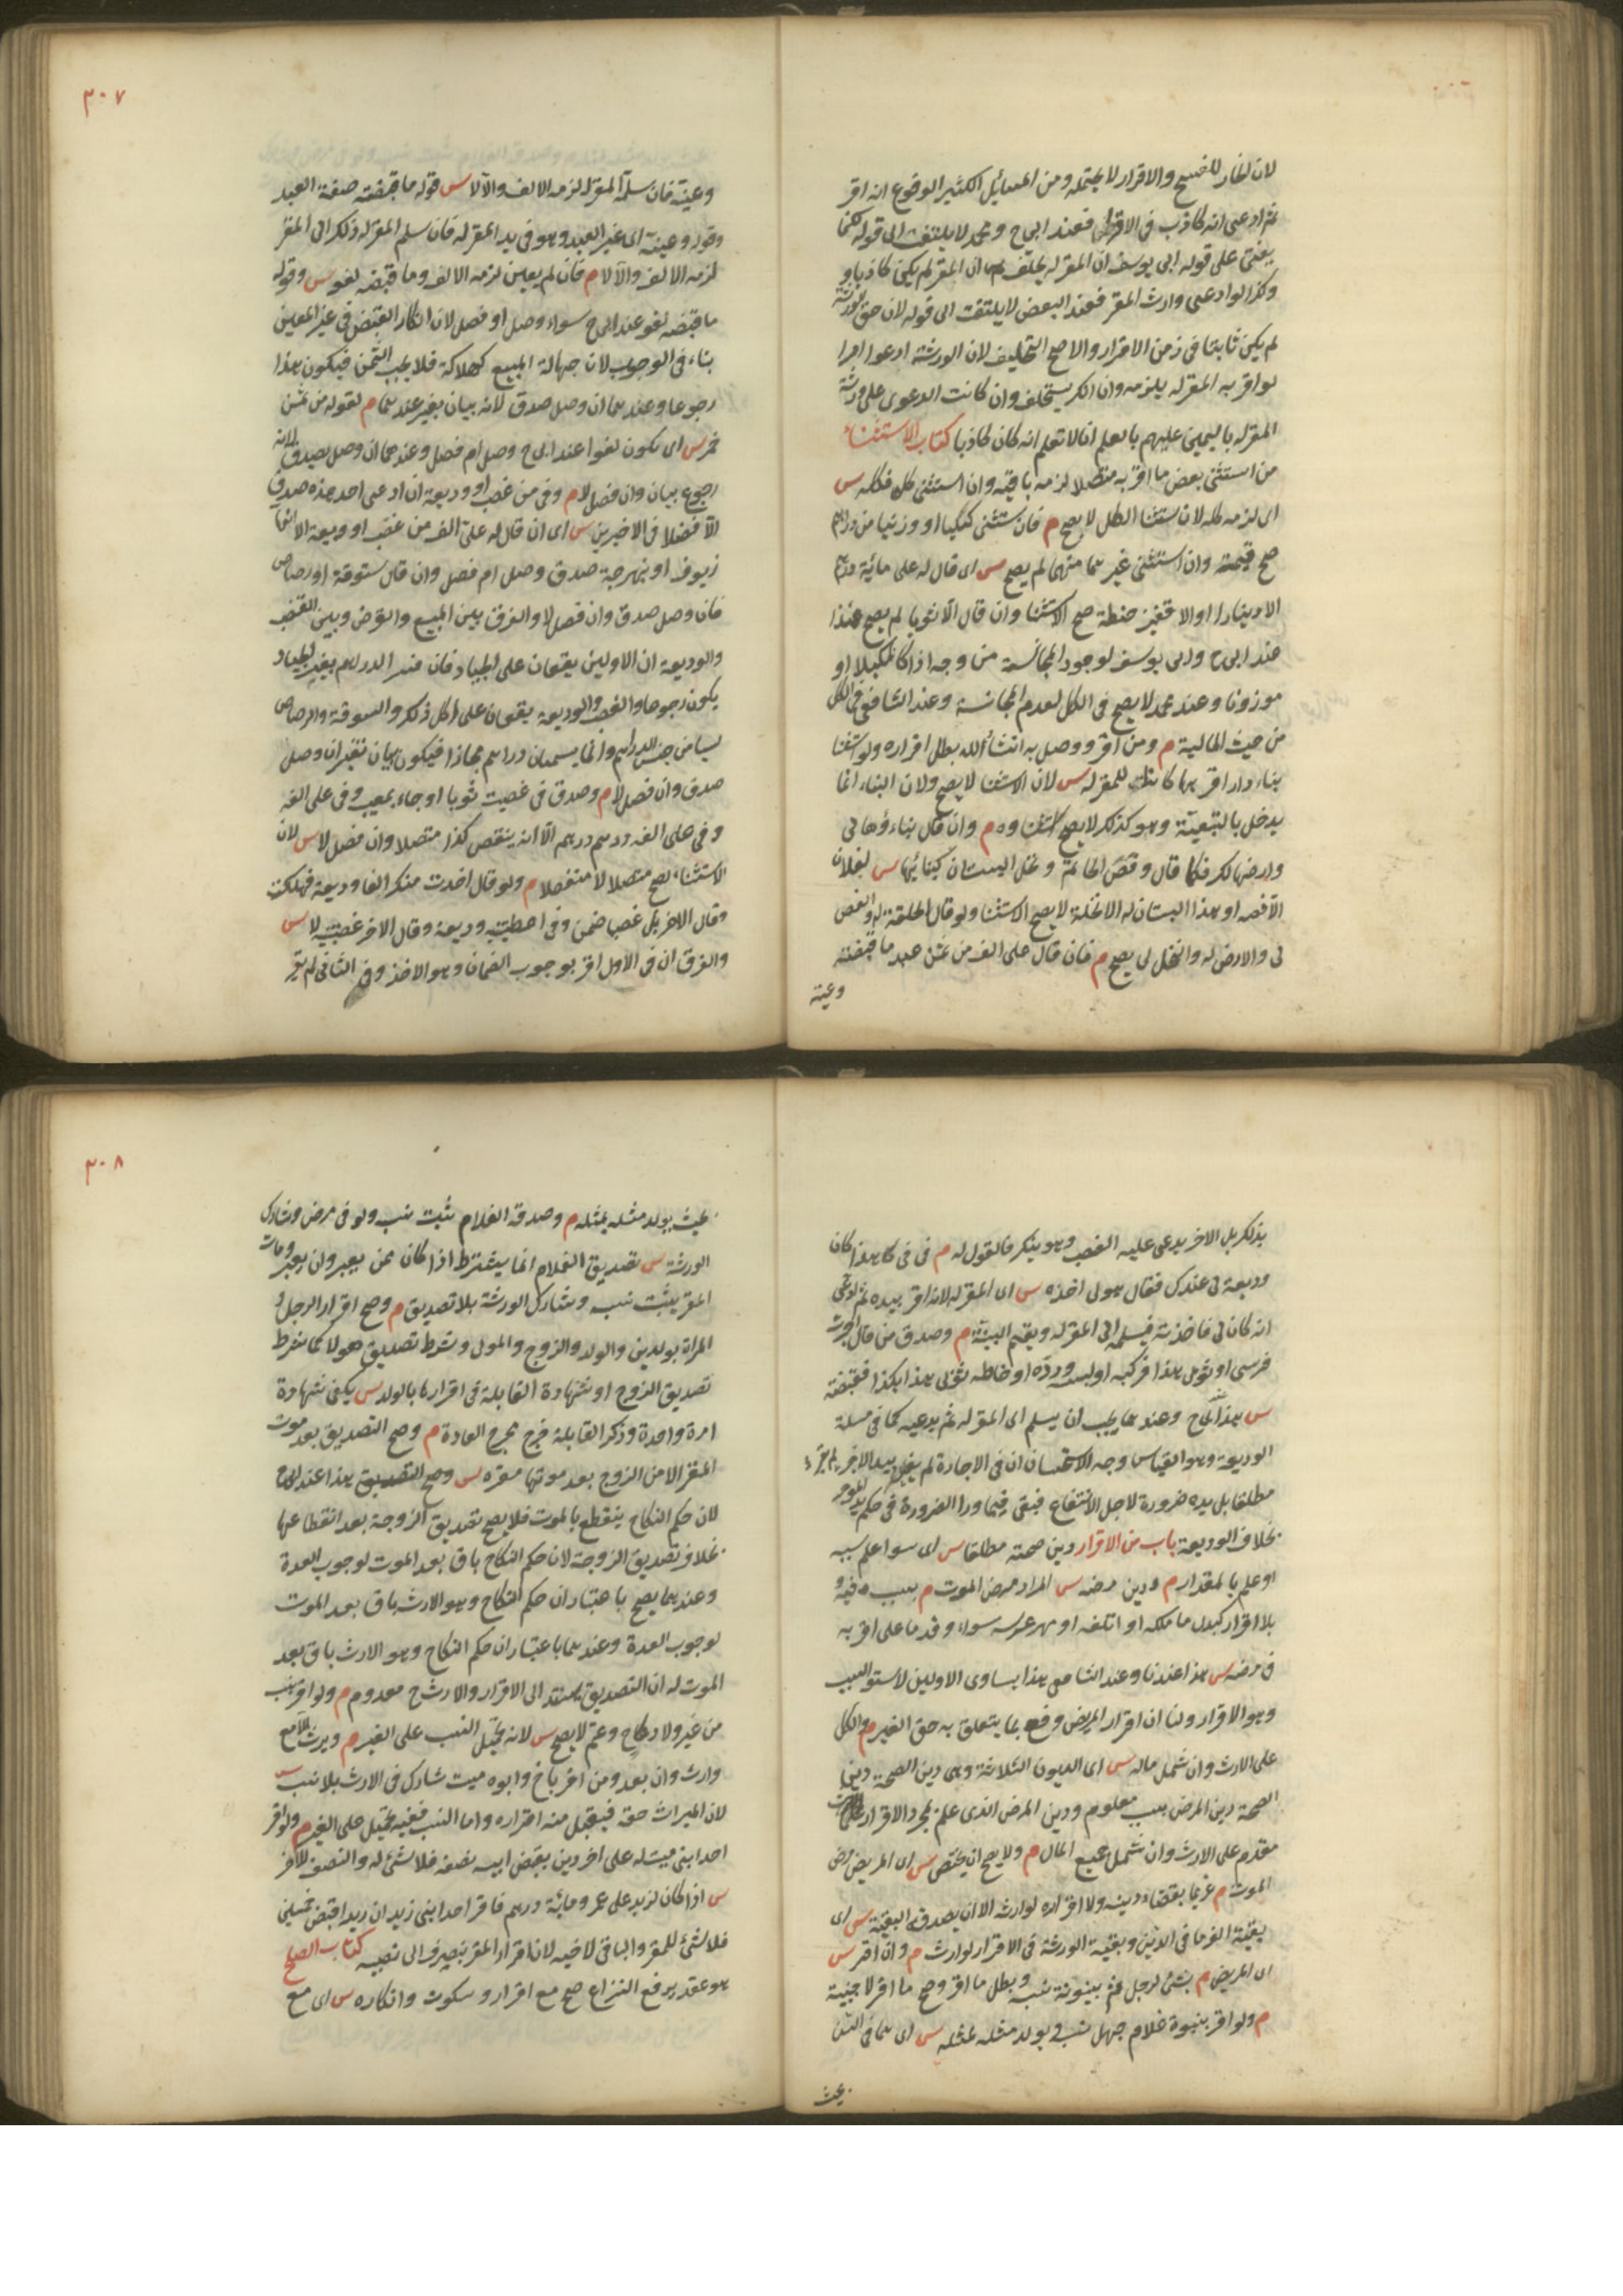 لان الخيار للفسخ والاقرار لا يحتمله ومن المسائل الكثير الوقوع انه اقر
ثم ادعى انه كاذب فى الاقرار فعند ابى ح ومحمد لا يلتفت الى قوله لكنما
يفتى على قوله ابى يوسف ان المقر له يحلف ان المقر لم يكن كاذبا و
وكذا لو ادعى وارث المقر فعند البعض لا يلتفت الى قوله لان حق الورثة
لم يكن ثابتا فى زمن الاقرار والاصح التحليف لان الورثة ادعوا امرا
لو اقر به المقر له يلزمه وان انكر يستحلف وان كانت الدعوى على ورثة
المقر له باليمين عليهم بالعلم انا لا نعلم انه كان كاذبا كتاب الاستثناء
من استثنى بعض ما اقر به متصلا لزمه باقيه وان استثنى كله فكله س
اى لزمه كله لان ستثنا الكل لا يصح م فان ستثنى كيليا او وزنيا من دراهم
صح قيمته وان استثنى غيرهما منها لم يصح س اى قال له على مائية درهم
الا دينارا او الا قفيز حنطة صح الاستثنا وان قال الا ثوبا لم يصح هذا
عند ابى ح وابى يوسف لوجود المجانسة من وجه اذا كان مكيلا او
موزونا وعند محمد لا يصح فى الكل لعدم المجانسة وعند الشافعى فى الكل
من حيث المالية م ومن اقر ووصل به انشأ الله بطل اقراره ولو استثنا
بناء دار اقر بها كانتا للمقر له س لان الاستثنا لا يصح ولان البناء انما
يدخل بالتبعية وهو كذلك لا يصح استثناوه م وان قال بناءؤها لى
وارضها لك فكما قال وفص الخاتمة ونخل البستان كبنائها س لفلان
الا فصه او هذا البستان له الا نخلة لا يصح الاستثنا ولو قال الحلقة له والفص
لى والارض له والنخل لى يصح م فان قال على الف من ثمن عبد ما قبضته
وعينه
٣٠٧
وعينه فان سلمه المقر له لزمه الالف والا لا س قوله ما قبضته صفة العبد
وقوله وعينه اى غير العبد وهو فى يد المقر له فان سلم المقر له ذلك الى المقر
لزمه الالف والا لا م فان لم يعين لزمه الالف وما قبضه لغو س وقوله
ما قبضه لغو عند ابى ح سواء وصل او فصل لان انكار القبض فى غير المعين
بناء فى الوجوب لان جهالة المبيع كهلاكه فلا يجب الثمن فيكون هذا
رجوعا وعندهما ان وصل صدق لانه بيان بغير عندهما م لقوله من ثمن
خمر س اى يكون لغوا عند ابى ح وصل ام فصل وعندهما ان وصل يصدق لانه
رجوع بيان وان فصل لا م وفى من غصب او وديعة ان ادعى احد هذه صدق
الا فصلا فى الاخيرين س اى ان قال له على الف من غصب او وديعة الا انها
زيوف او نبهرجة صدق وصل ام فصل وان قال ستوقة او رصاص
فان وصل صدق وان فصل لا والفرق بين المبيع والقرض وبين الغصب
والوديعة ان الاولين يقعان على الجياد فان فسر الدراهم بغير الجياد
يكون رجوعا والغصب والوديعة يقعان على كل ذلك والستوقة والرصاص
ليسا من جنس الدراهم وانما يسميان دراهم مجازا فيكون بيان تغير ان وصل
صدق وان فصل لا م وصدق فى غصبت ثوبا او جاء بمعيب وفى على الف
وفى على الف درهم درهم الا انه ينقص كذا متصلا وان فصل لا س لان
الاستثناء يصح متصلا لا منفصلا م ولو قال اخذت منك الفا وديعة فهلكت
وقال الاخر بل غصبا ضمن وفى اعطيتنيه وديعة وقال الاخر غصبتنيه لا س
والفرق ان فى الاول اقر بوجوب الضمان وهو الاخذ وفى الثانى لم يقر
بذلك بل الاخر يدعى عليه الغصب وهو ينكر فالقول له م فى فى كا هذا كان
وديعة لى عندك فقال هو لى اخذه س اى المقر له لانه اقر بيده ثم ادعى
انه كان لى فاخذته فيسلمه الى المقر له ويقيم البينة م وصدق من قال اجرت
فرسى او ثوبى هذا فركبه او لبسه ورده او خاطه ثوبى هذا بكذا فقبضته
س هذا عند ابى ح وعندهما يجب ان يسلم الى المقر له ثم يدعيه كما فى مسلة
الوديعة وهو القياس وجه الاستحسان ان فى الاجارة لم يقر بيد الاخر
مطلقا بل يده ضرورة لاجل الانتفاع فبقى فيما ورا الضرورة فى حكم يد الموجر
بخلاف الوديعة باب من الاقرار دين صحته مطلقا س اى سوا علم سببه
او علم بالمقدار م ودين مرضه س المراد مرض الموت م بسبب فيه و
بلا اقرار كبدل ما ملكه او اتلفه او مهر عرسه سواء وقدما على اقر به
فى مرضه س هذا عندنا وعند الشافعى هذا يساوى الاولين لاستوا السبب
وهو الاقرار ولنا ان اقرار المريض وقع بما يتعلق به حق الغير م والكل
على الارث وان شمل ماله س اى الديون الثلاثة وهى دين الصحة دين
الصحة دين المرض بسبب معلوم ودين المرض الذى علم بمجرد الاقرار
مقدم على الارث وان شمل جميع المال م ولا يصح ان يختص س اى المريض مرض
الموت م غريما بقضاء دينه ولا اقراره لوارثه الا ان يصدقه البقية س اى
بقية الغرما فى الدين وبقية الورثة فى الاقرار لوارث م وان اقر س
اى المريض م بشئ لرجل ثم ببنوته ثبت نسبه وبطل ما اقر وصح ما اقر لاجنبية
م ولو اقر ببنوة غلام جهل نسبه يولد مثله لمثله س اى هما فى السن
بحيث
٣٠٨
بحيث يولد مثله لمثله م وصدقه الغلام ثبت نسبه ولو فى مرض وشارك
الورثة س تصديق الغلام انما يشترط اذا كان ممن يعبر وان لم يعبر ومات
المقر يثبت نسبه وشارك الورثة بلا تصديق م وصح اقرار الرجل و
المراة بولدين والولد والزوج والمولى وشرط تصديق هولا كما شرط
تصديق الزوج او شهادة القابلة فى اقرارها بالولد س يكفى شهادة
امرة واحدة وذكر القابلة خرج مخرج العادة م وصح التصديق بعد موت
المقر الا من الزوج بعد موتها مقره س وصح التصديق هذا عند ابى ح
لان حكم النكاح ينقطع بالموت فلا يصح تصديق الزوجة بعد انقطاعها
بخلاف تصديق الزوجة لان حكم النكاح باق بعد الموت لوجوب العدة
وعندهما يصح باعتبار ان حكم النكاح وهو الارث باق بعد الموت
لوجوب العدة وعندهما باعتبار ان حكم النكاح وهو الارث باق بعد
الموت له ان التصديق يستند الى الاقرار والارث ح معدوم م ولو اقر بنسب
من غير ولاد كاخ وعم لا يصح س لانه تحميل النسب على الغير م ويرث الا مع
وارث وان بعد ومن اقر باخ وابوه ميت شارك فى الارث بلا نسب س
لان الميراث حقه فيقبل منه اقراره واما النسب ففيه تحميل على الغير م ولو اقر
احد ابنى ميت له على اخر دين بقبض ابيه نصفه فلا شئ له والنصف للاخر
س اذا كان لزيد على عمرو مائية درهم فاقر احد ابنى زيد ان زيدا قبض خمسين
فلا شئ للمقر والباقى لاخيه لان اقرار المقر ينصرف الى نصيبه كتاب الصلح
هو عقد يرفع النزاع صح مع اقرار وسكوت وانكاره س اى مع